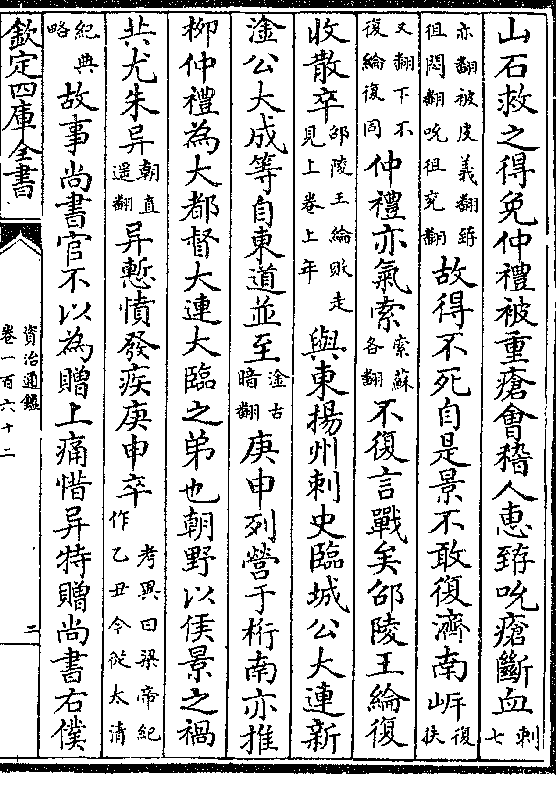 山石救之得免仲禮被重瘡會稽人惠臶吮瘡斷血刺七
亦翻被皮義翻臶徂悶翻吮徂兖翻故得不死自是景不敢復濟南岍復扶
又翻下不復綸復同仲禮亦氣索索蘇各翻不復言戰矣邵陵王綸復
收散卒邵陵王綸敗走見上卷上年與東揚州刺史臨城公大連新
淦公大成等自東道並至淦古暗翻庚申列營于桁南亦推
柳仲禮為大都督大連大臨之弟也朝野以侯景之禍
共尤朱异朝直遥翻异慙憤發疾庚申卒考異曰梁帝紀作乙丑今從太清
紀典略故事尚書官不以為贈上痛惜异特贈尚書右僕
欽定四庫全書
資治通鑑
卷一百六十二
二